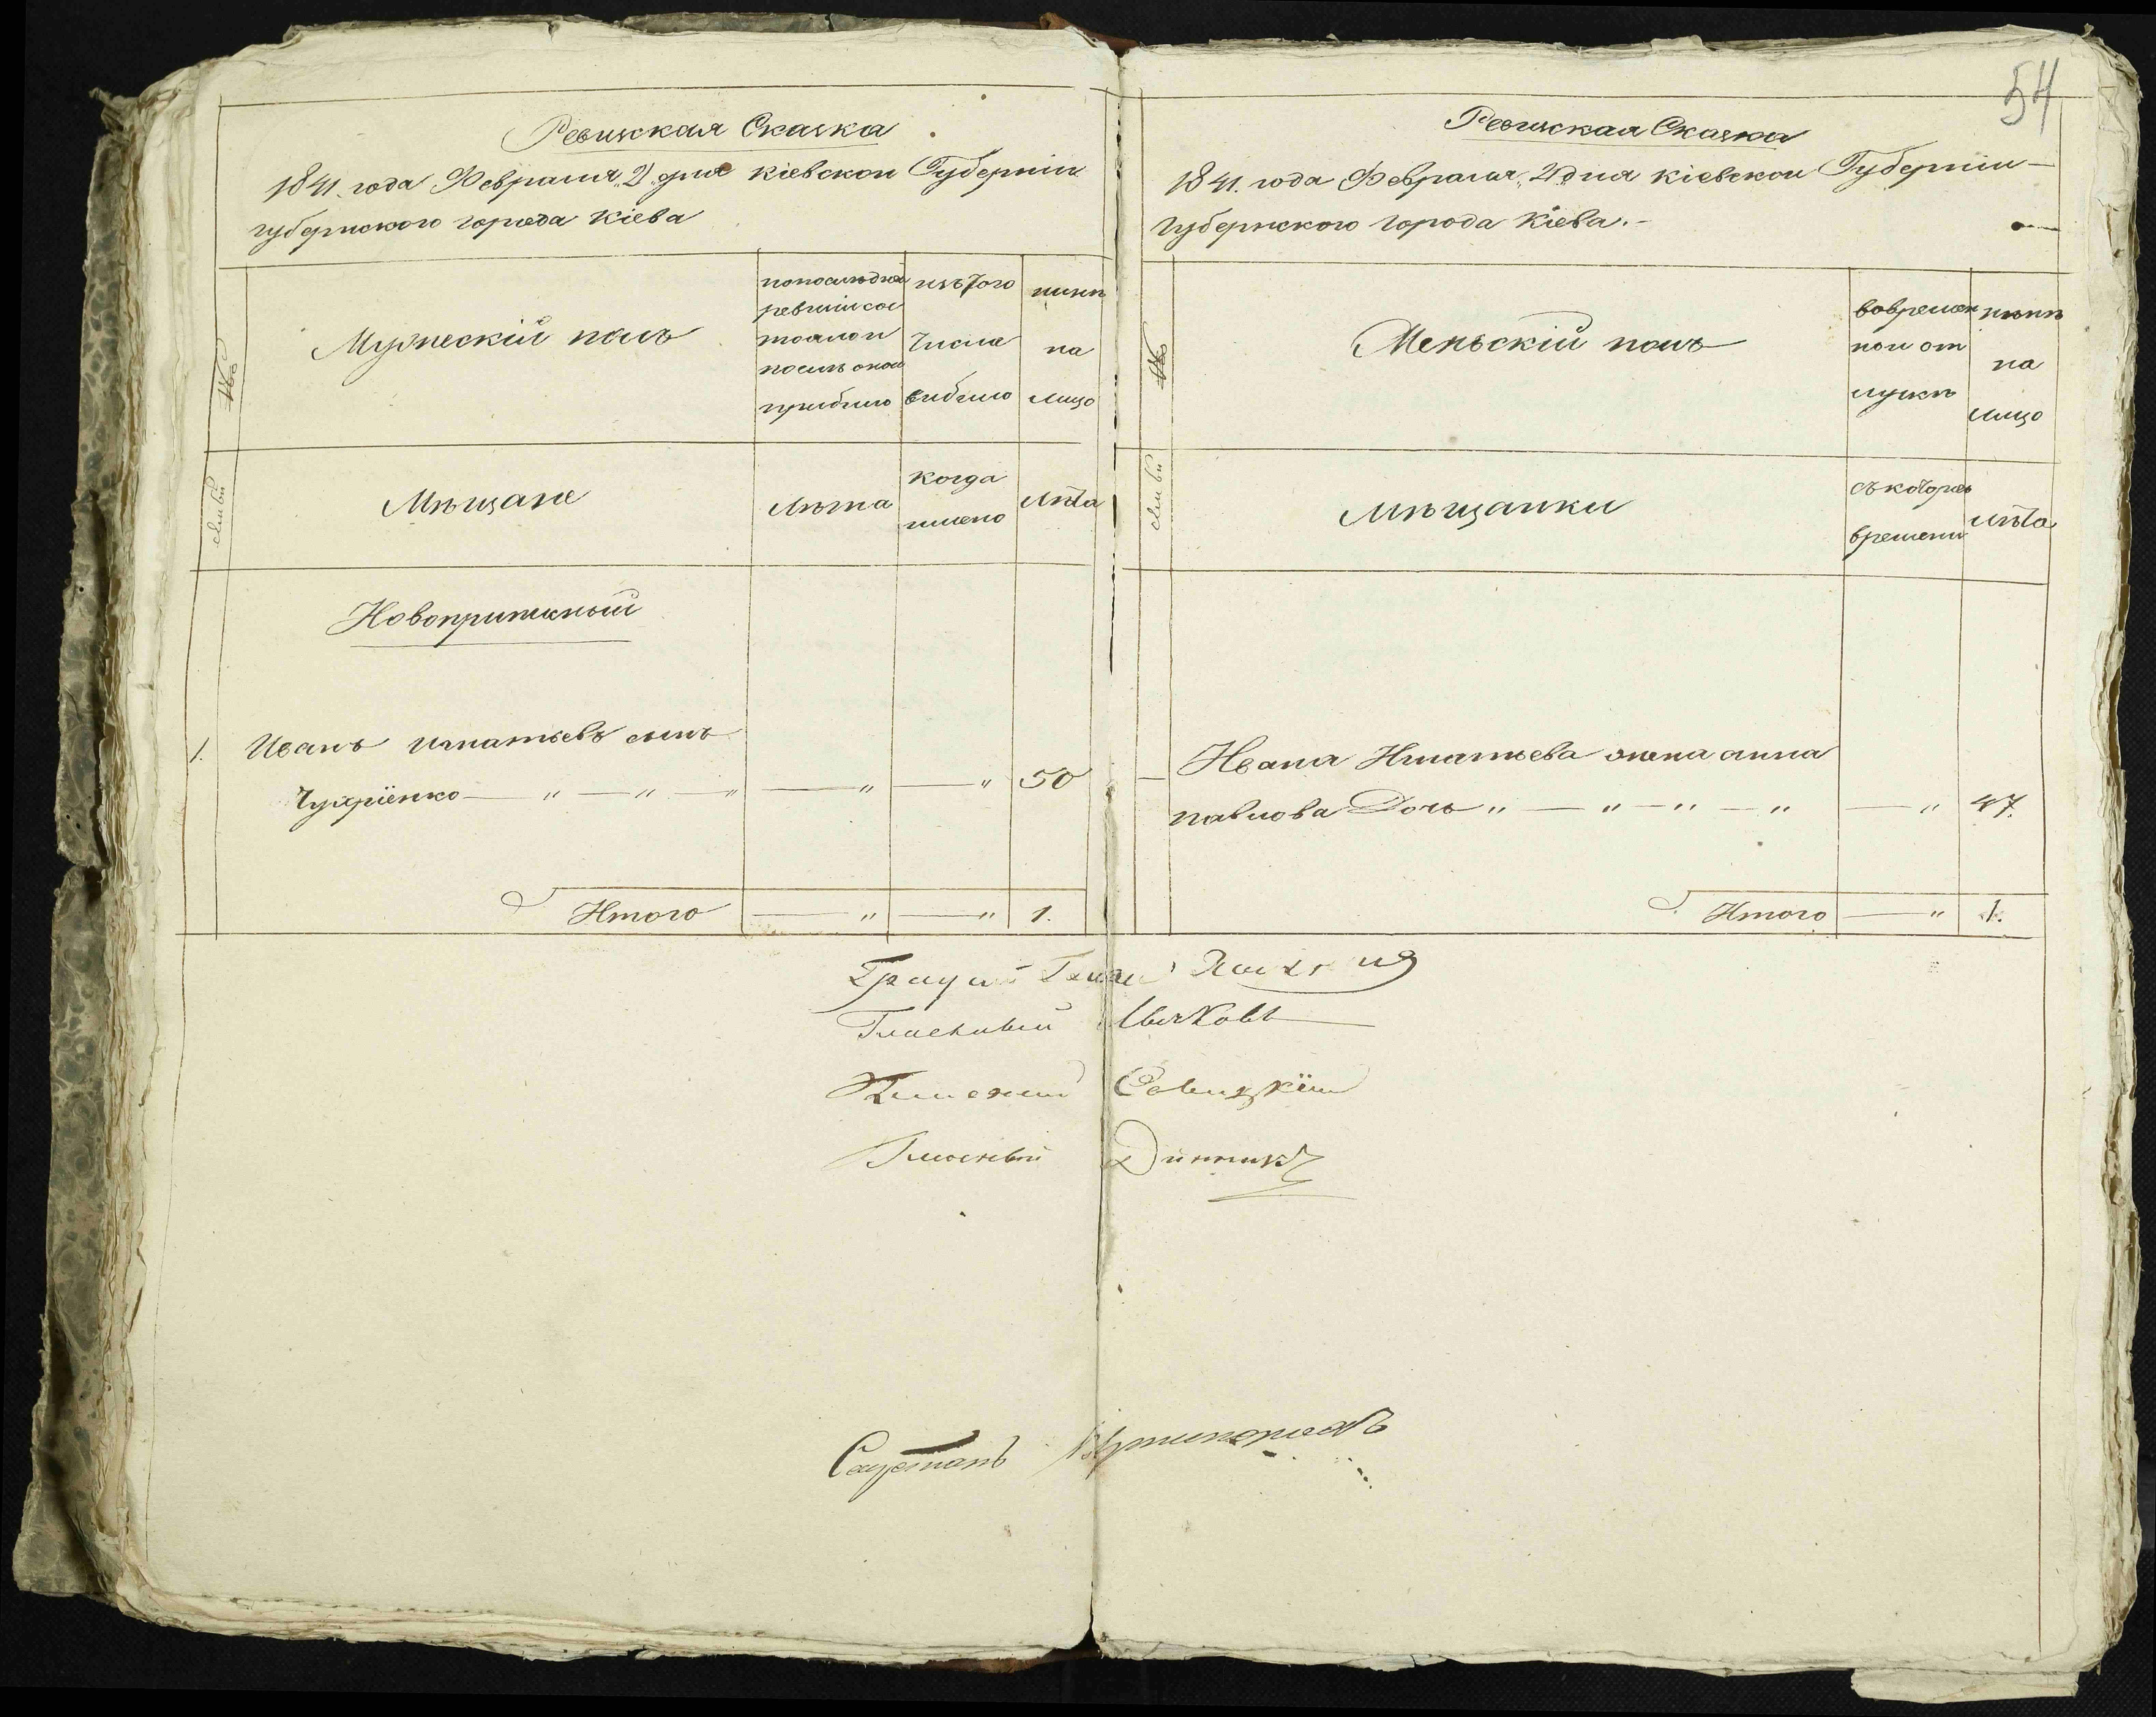 Ревизская Сказка
1841. года Февраля „2„ дня Кіевской Губерніи
губернского города Кіева
№
Мужескій полъ
по последней
ревизіи сос
тояло и
после оной
прибыло
изъ того
числа
выбыло
ныне
на
лицо
семьи
Мѣщане
Лѣта
когда
имено
Лѣта
Новоприписный
1. Иванъ Игнатьевъ сынъ
Чухріенко — „ — „ — „ — „ — „ 50
Итого — „ — „ 1.
54
Ревизская Сказка
1841. года Февраля „2„ дня Кіевской Губерніи —
губернского города Кіева. -
№
Женьскій полъ
во времен
ной от
лучкѣ
нынѣ
на
лицо
семьи
Мѣщанки
съ котораго
времени
лѣта
— Ивана Игнатьева жена анна
павлова Дочь „ — „ — „ — „ — „ 47.
Итого — „ 1.
Гласный
Гласный Савицкій
Гласный Динникъ